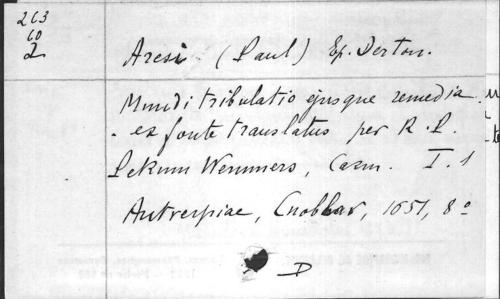 263
60
2
Aresi (Paul) Ep. Derton.
Mundi tribulatio ejusque remedia
ex fonte translatus per R. P.
Petrum Wemmers, Carm. I. 1
Antverpiae, Cnobbar, 1651, 8o
D